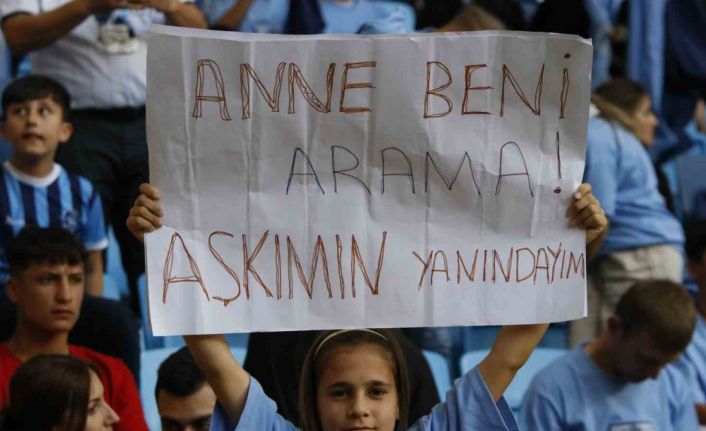 ANNE BENi
ARAMA!
AŞKIMIN YANINDAYIM